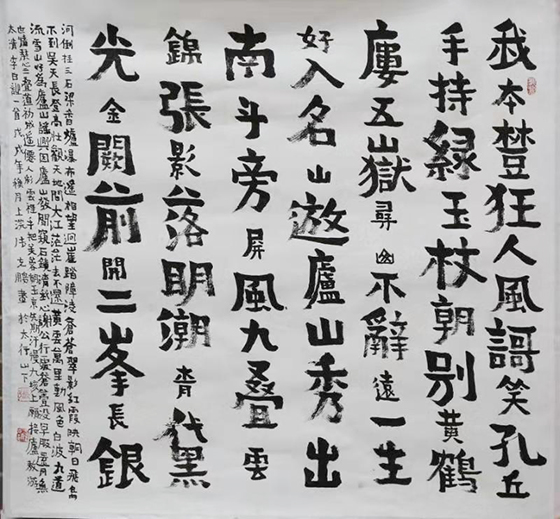 我本楚狂人風謌笑孔丘
手持緑玉杖朝别黄鶴
廔五嶽尋幽不辭遠一生
好入名山遊廬山秀出
南斗旁屏風九叠雲
錦張影落明潮青代黑
光金闕前開二峯長銀
河倒挂三石梁香爐瀑布遥相望迴崖踏障凌蒼蒼翠影紅霞映朝日飛鳥
不到吴天長登高壮觀天地間大江茫茫去不還黄雲萬里動風色白波九道
流雪山好為廬山謡興因廬山發閒窺石鏡清我心謝公行處蒼苔没早服還丹無
世情琴心三叠道初成遥僊人彩雲裡手把芙蓉朝玉京先期汗漫九垓上願接盧敖游
太清李白詩一首戊戌年秋月上浣克書於太行山下